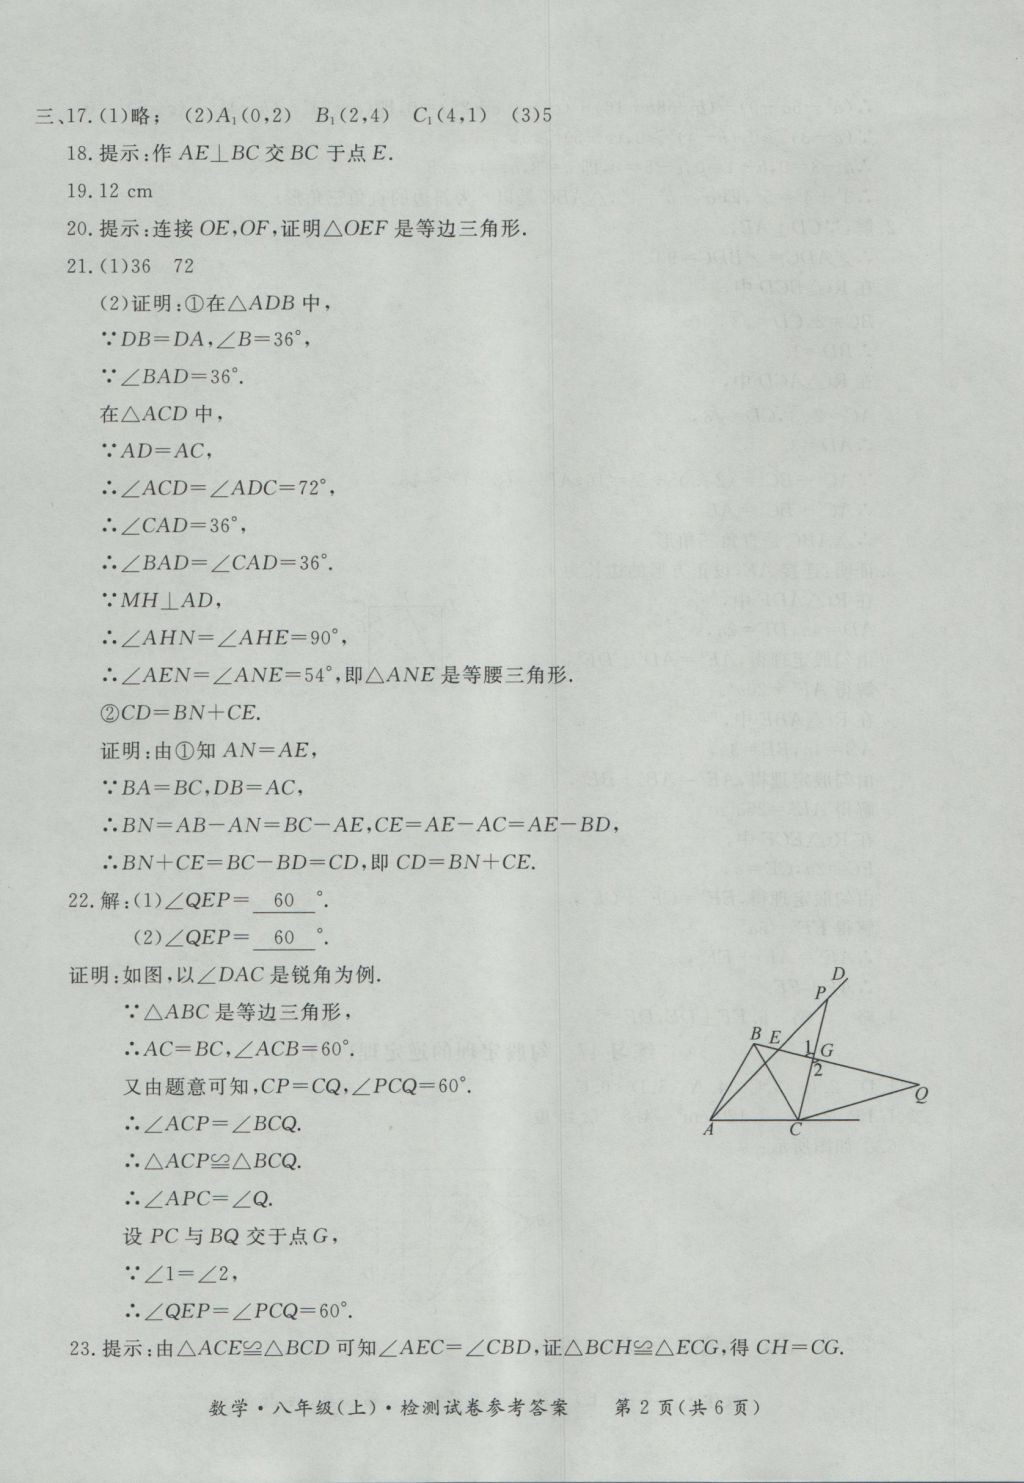 三、17.(1)略； (2)A₁(0,2) B₁(2,4) C₁(4,1) (3)5
18.提示:作 AE⊥BC 交 BC 于点 E.
19.12 cm
20.提示:连接 OE,OF,证明△OEF 是等边三角形.
21.(1)36 72
(2)证明:①在△ADB 中,
∵DB=DA,∠B=36°,
∵∠BAD=36°.
在△ACD 中,
∵AD=AC,
∴∠ACD=∠ADC=72°,
∴∠CAD=36°,
∴∠BAD=∠CAD=36°.
∵MH⊥AD,
∴∠AHN=∠AHE=90°,
∴∠AEN=∠ANE=54°,即△ANE 是等腰三角形.
②CD=BN+CE.
证明:由①知 AN=AE,
∵BA=BC,DB=AC,
∴BN=AB-AN=BC-AE,CE=AE-AC=AE-BD,
∴BN+CE=BC-BD=CD,即 CD=BN+CE.
22.解:(1)∠QEP= 60 °.
(2)∠QEP= 60 °.
证明:如图,以∠DAC 是锐角为例.
∵△ABC 是等边三角形,
∴AC=BC,∠ACB=60°.
又由题意可知,CP=CQ,∠PCQ=60°.
∴∠ACP=∠BCQ.
∴△ACP≌△BCQ.
∴∠APC=∠Q.
设 PC 与 BQ 交于点 G,
∵∠1=∠2,
∴∠QEP=∠PCQ=60°.
D
P
B E 1 G
2
Q
A C
23.提示:由△ACE≌△BCD 可知∠AEC=∠CBD,证△BCH≌△ECG,得 CH=CG.
数学·八年级(上)·检测试卷参考答案 第 2 页(共 6 页)